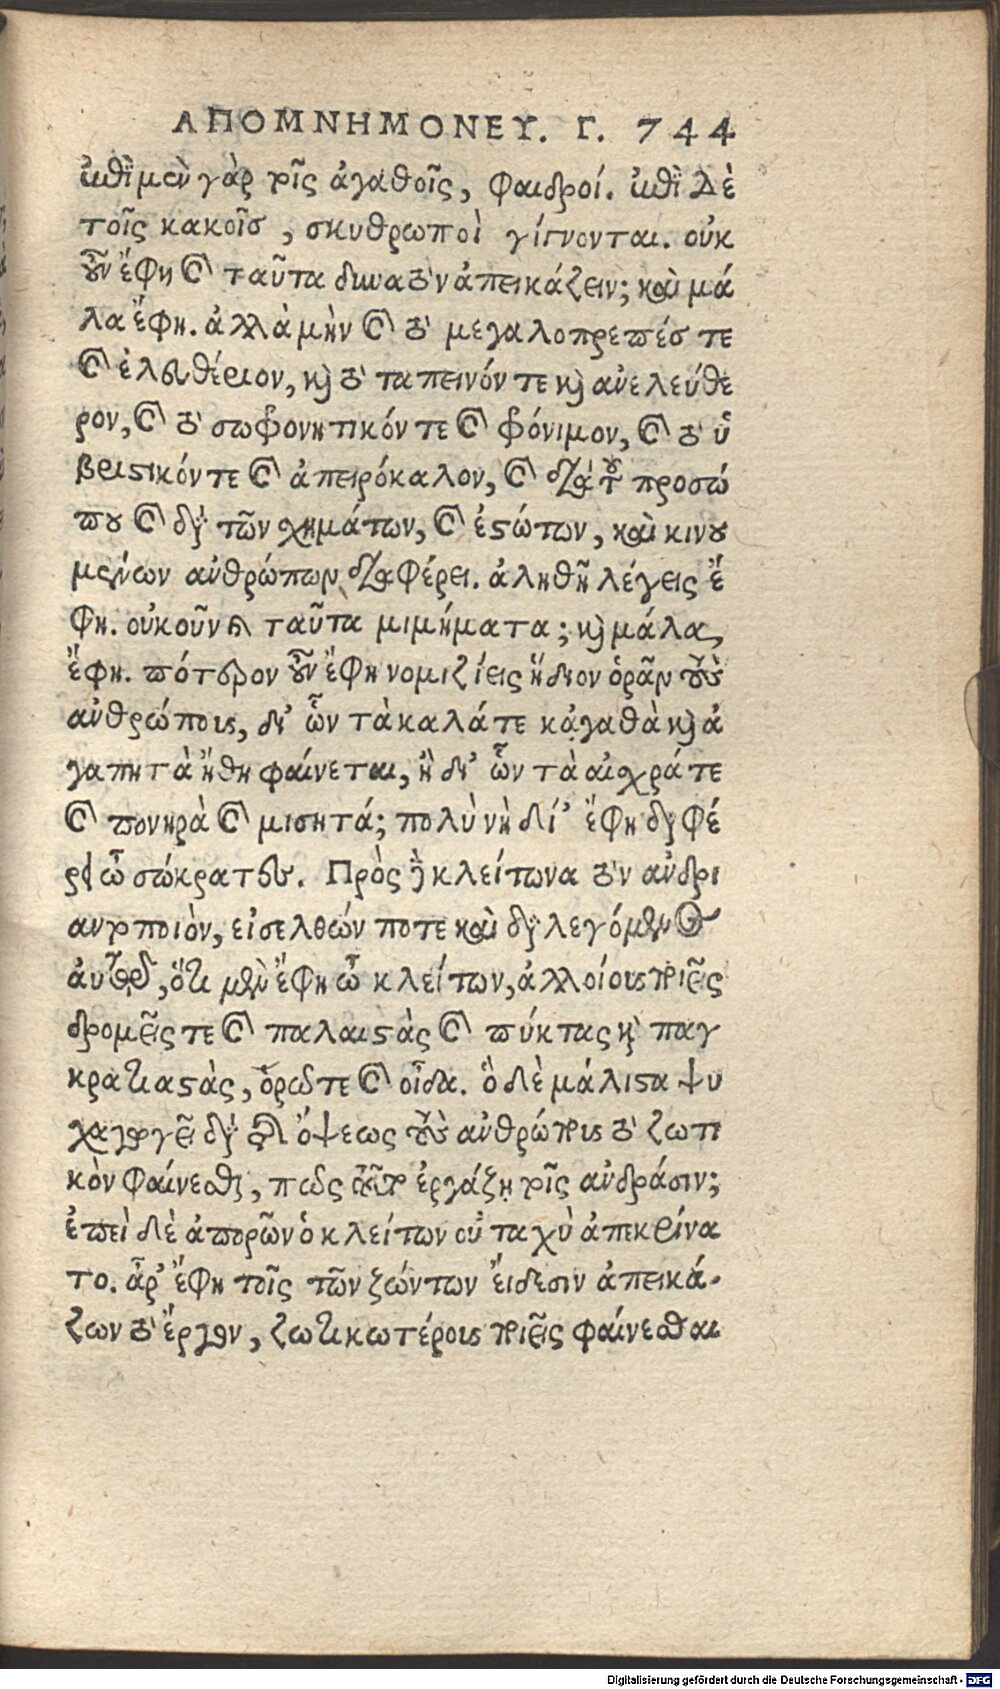 ΑΠΟΜΝΗΜΟΝΕΥ. Γ. 744
ἐπὶ μὲν γὰρ τοῖς ἀγαθοῖς, φαιδροί. ἐπὶ δὲ
τοῖς κακοῖς, σκυθρωποὶ γίγνονται. οὐκ
οῦν ἔφη καὶ ταῦτα δυνατὸν ἀπεικάζειν; καὶ μά
λα ἔφη. ἀλλὰ μὴν καὶ τὸ μεγαλοπρεπές τε
καὶ ἐλευθέριον, καὶ τὸ ταπεινόν τε καὶ ἀνελεύθε
ρον, καὶ τὸ σωφρονητικόν τε καὶ φρόνιμον, καὶ τὸ ὑ
βριστικόν τε καὶ ἀπειρόκαλον, καὶ διὰ τοῦ προσώ
που καὶ διὰ τῶν σχημάτων, καὶ ἑστώτων, καὶ κινου
μένων ἀνθρώπων διαφέρει. ἀληθῆ λέγεις ἔ
φη. οὐκοῦν καὶ ταῦτα μιμήματα; καὶ μάλα,
ἔφη. πότερον οὖν ἔφη νομίζεις ἥδιον ὁρᾶν τοὺς
ἀνθρώπους, δι' ὧν τὰ καλά τε κἀγαθὰ καὶ ἀ
γαπητὰ ἤθη φαίνεται, ἢ δι' ὧν τὰ αἰσχρά τε
καὶ πονηρὰ καὶ μισητά; πολὺ νὴ δί' ἔφη διαφέ
ρει ὦ σώκρατες. Πρὸς δὲ κλείτωνα τὸν ἀνδρι
αντοποιὸν, εἰσελθών ποτε καὶ διαλεγόμενος
αὐτῷ, ὅτι μὲν ἔφη ὦ κλείτων, ἀλλοίους ποιεῖς
δρομεῖς τε καὶ παλαιστὰς καὶ πύκτας καὶ παγ
κρατιαστὰς, ὁρῶ τε καὶ οἶδα. ὃ δὲ μάλιστα ψυ
χαγωγεῖ διὰ τῆς ὄψεως τοὺς ἀνθρώπους τὸ ζωτι
κὸν φαίνεσθαι, πῶς τοῦτο ἐργάζῃ τοῖς ἀνδράσιν;
ἐπεὶ δὲ ἀπορῶν ὁ κλείτων οὐ ταχὺ ἀπεκρίνα
το. ἆρ' ἔφη τοῖς τῶν ζώντων εἴδεσιν ἀπεικά-
ζων τὸ ἔργον, ζωτικωτέρους ποιεῖς φαίνεσθαι
Digitalisierung gefördert durch die Deutsche Forschungsgemeinschaft - DFG